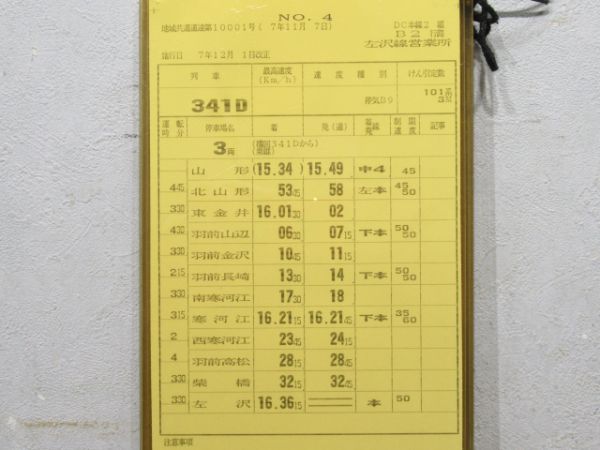 NO. 4
地域共通運達第10001号( 7年11月 7日)
DC本線2 組
B 2 行
左沢線営業所
施行日 7年12月 1日改正
列車 最高速度(Km/h) 速度種別 けん引定数
341D 停気B9 101系 3両
運転時分 停車場名 着 発(通) 着発線 制限速度 記事
3両 341Dから)
山形 (15.34) 15.49 中4 45
445 北山形 5345 58 左本 45 50
330 東金井 16.0130 02
430 羽前山辺 0630 0715 下本 50 50
330 羽前金沢 1045 1115
215 羽前長崎 1330 14 下本 50 50
330 南寒河江 1730 18
315 寒河江 16.2115 16.2145 下本 35 60
2 西寒河江 2345 2415
4 羽前高松 2815 2845
330 柴橋 3215 3245
330 左沢 16.3615 本 50
注意事項